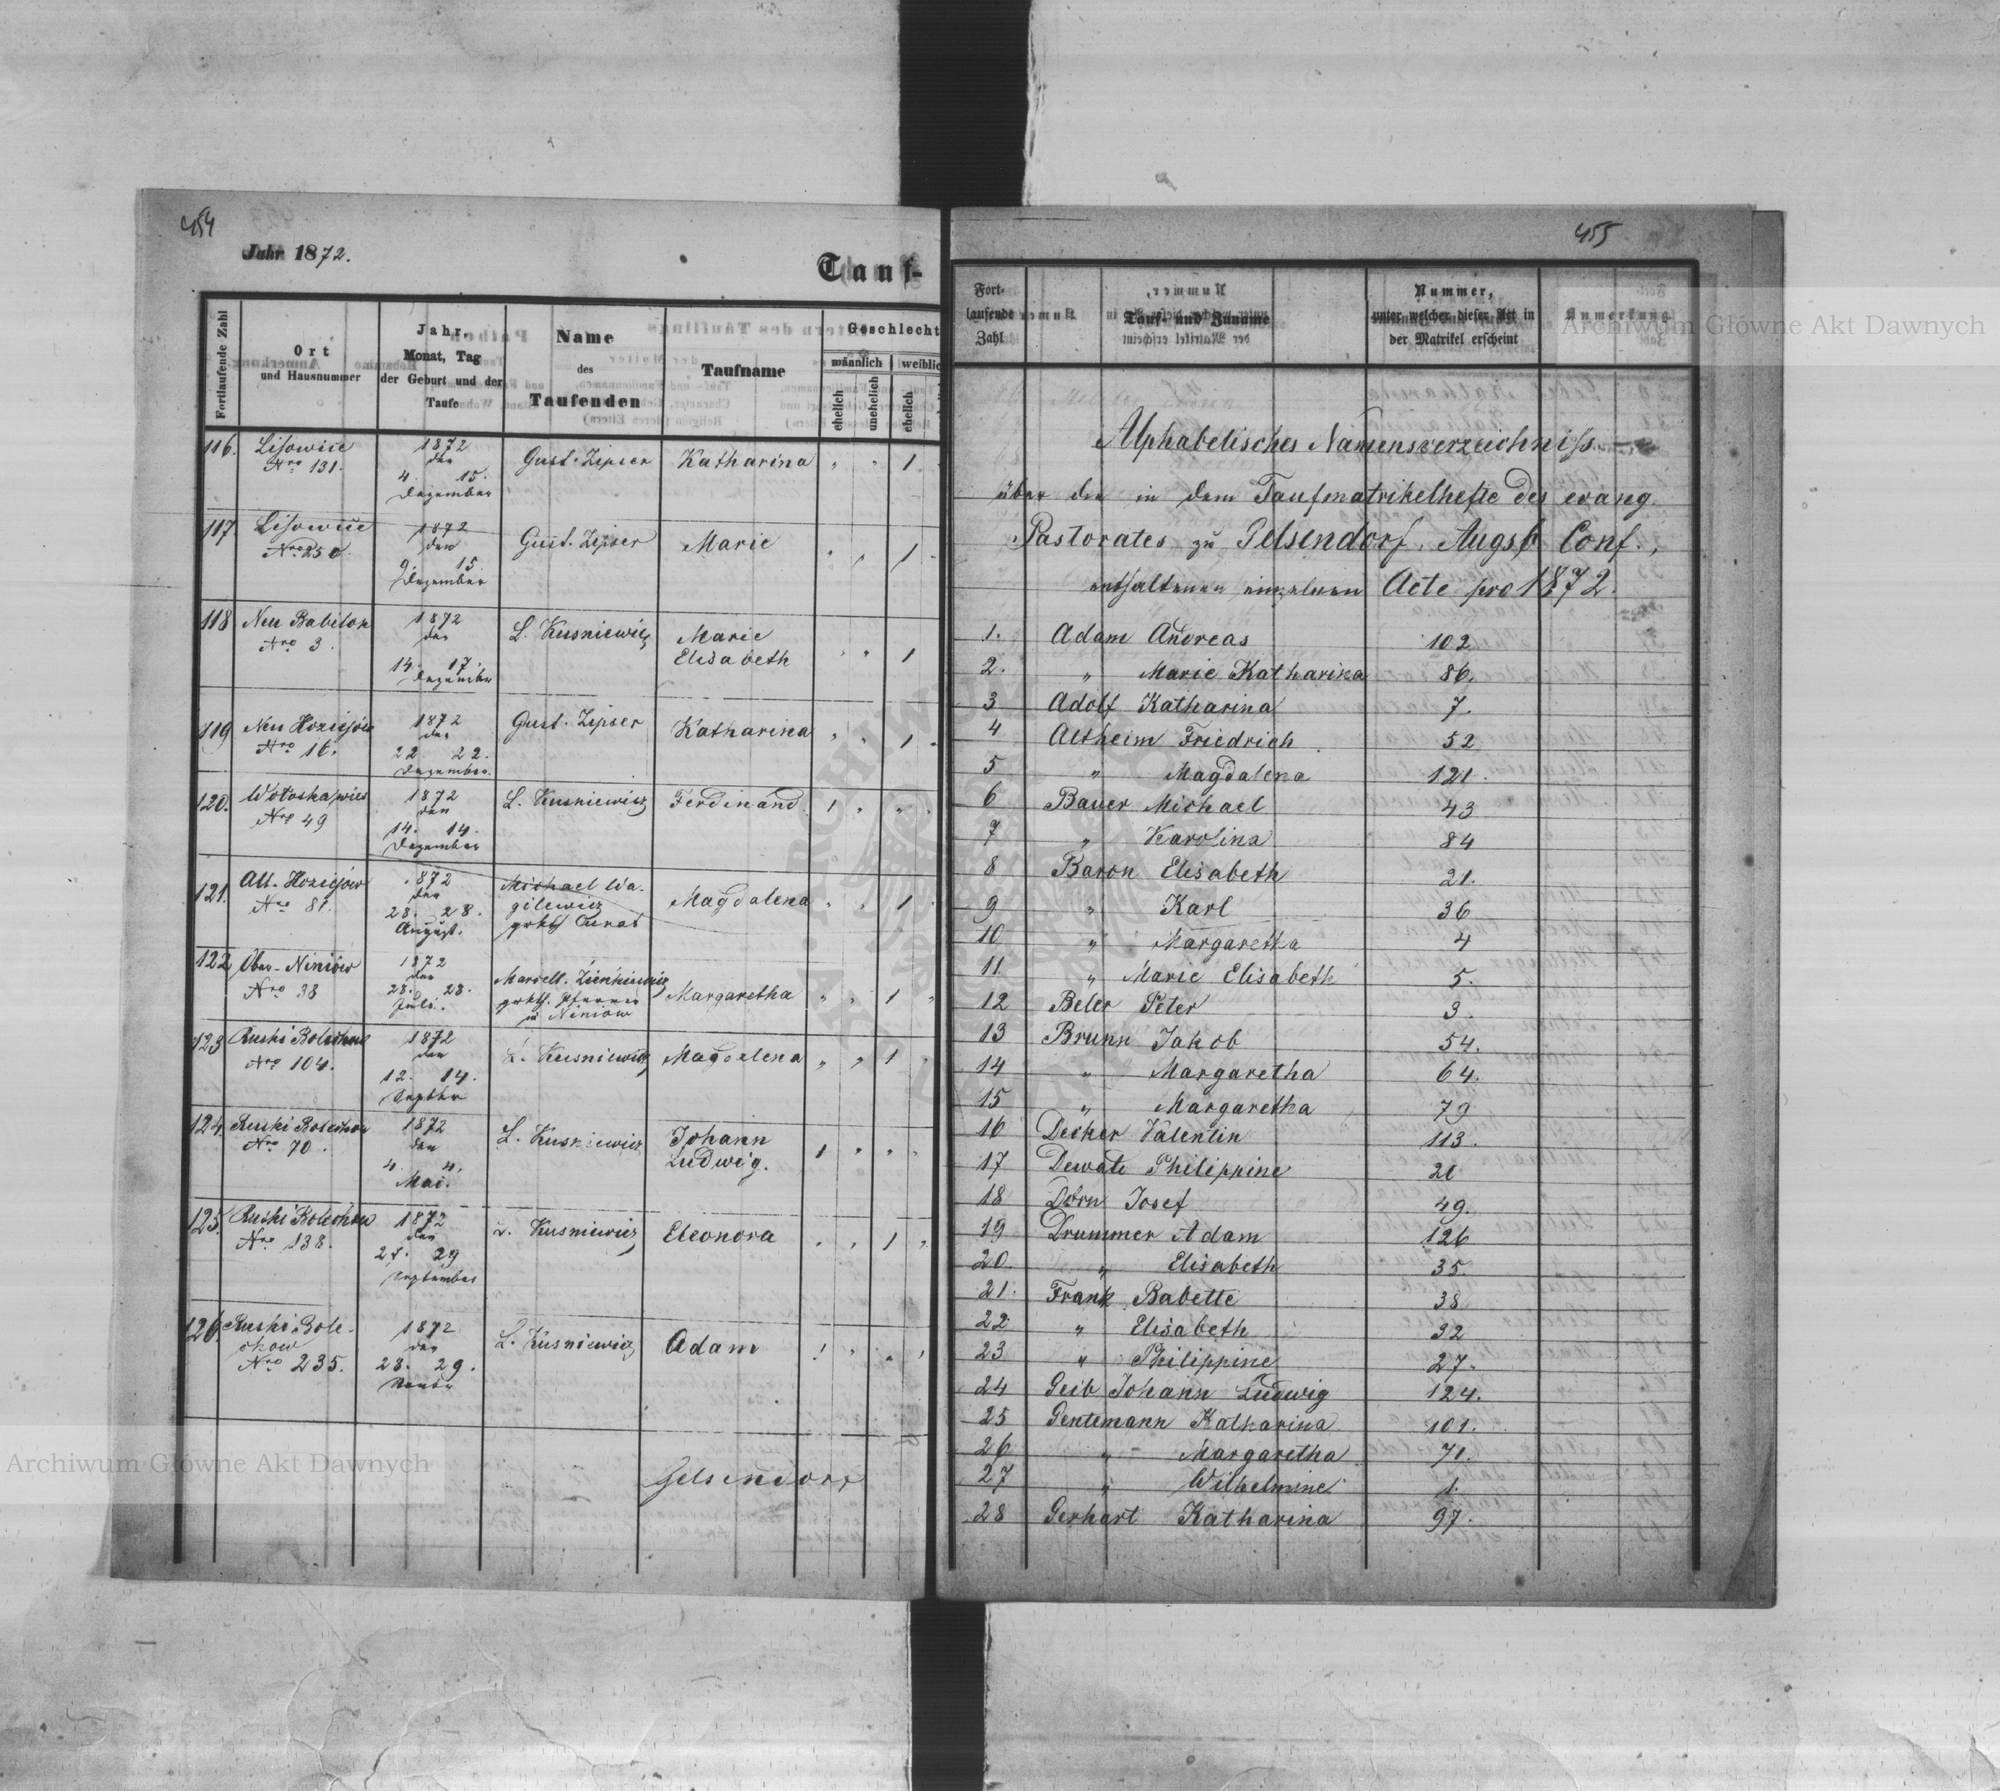 454
Jahr 1872.
Tauf-
Fortlaufende Zahl
Ort
und Hausnummer
Jahr,
Monat, Tag
der Geburt und der
Taufe
Name
des
Taufenden
Taufname
Geschlecht
männlich
weiblich
ehelich
unehelich
ehelich
116. Lisowice Nro 131. 1872 den 4. 15. Dezember Gust. Zipser Katharina " " 1
117 Lisowice Nro 250. 1872 den 9. 15. Dezember Gust. Zipser Marie " " 1
118 Neu Babilon Nro 3. 1872 den 14. 17. Dezember L. Kusniewicz Marie Elisabeth " " 1
119 Neu Hoziejów Nro 16. 1872 den 22 22. Dezember Gust. Zipser Katharina " " 1
120. Wołoskawies Nro 49 1872 den 14. 14. Dezember L. Kusniewicz Ferdinand 1 " "
121. Alt-Hoziejów Nro 81. 1872 den 28. 28. August. Michael Wagilewicz grkth Curat Magdalena " " 1
122 Ober-Niniów Nro 38 1872 den 28. 28. Juli. Marcell. Zienkiewicz grkth. Pfarrer in Niniow Margaretha " " 1 "
123 Ruski Bolechow Nro 104. 1872 den 12. 14. Septber L. Kusniewicz Magdalena " " 1 "
124. Ruski Bolechow Nro 70. 1872 den 4. 4. Mai. L. Kusniewicz Johann Ludwig. 1 " " "
125. Ruski Bolechow Nro 138. 1872 den 27. 29 September L. Kusniewicz Eleonora " " 1 "
126. Ruski Bolechow Nro 235. 1872 den 28. 29. L. Kusniewicz Adam 1 " " "
Gelsendorf
455
Fort-
laufende
Zahl
Tauf- und Zuname
Nummer,
unter welcher dieser Act in
der Matrikel erscheint
Anmerkung
Alphabetisches Namensverzeichniss
über die in dem Taufmatrikelhefte des evang.
Pastorates zu Gelsendorf. Augsb Conf.,
enthaltenen einzelnen Acte pro 1872.
1. Adam Andreas 102
2. " Marie Katharina 86.
3 Adolf Katharina 7.
4 Altheim Friedrich 52
5 " Magdalena 121.
6 Bauer Michael 43
7 " Karolina 84
8 Baron Elisabeth 21.
9 " Karl 36
10 " Margaretha 4
11 " Marie Elisabeth 5.
12 Beler Peter 3.
13 Brunn Jakob 54.
14 " Margaretha 64.
15 " Margaretha 79
16 Decker Valentin 113.
17 Dewald Philippine 20
18 Dörn Josef 49.
19 Drummer Adam 126
20 " Elisabeth 35.
21. Frank Babette 38
22 " Elisabeth 32
23 " Philippine 27.
24 Geib Johann Ludwig 124.
25 Gentemann Katharina 101.
26 " Margaretha 71.
27 " Wilhelmine 1.
28 Gerhart Katharina 97.
Archiwum Główne Akt Dawnych
Archiwum Główne Akt Dawnych